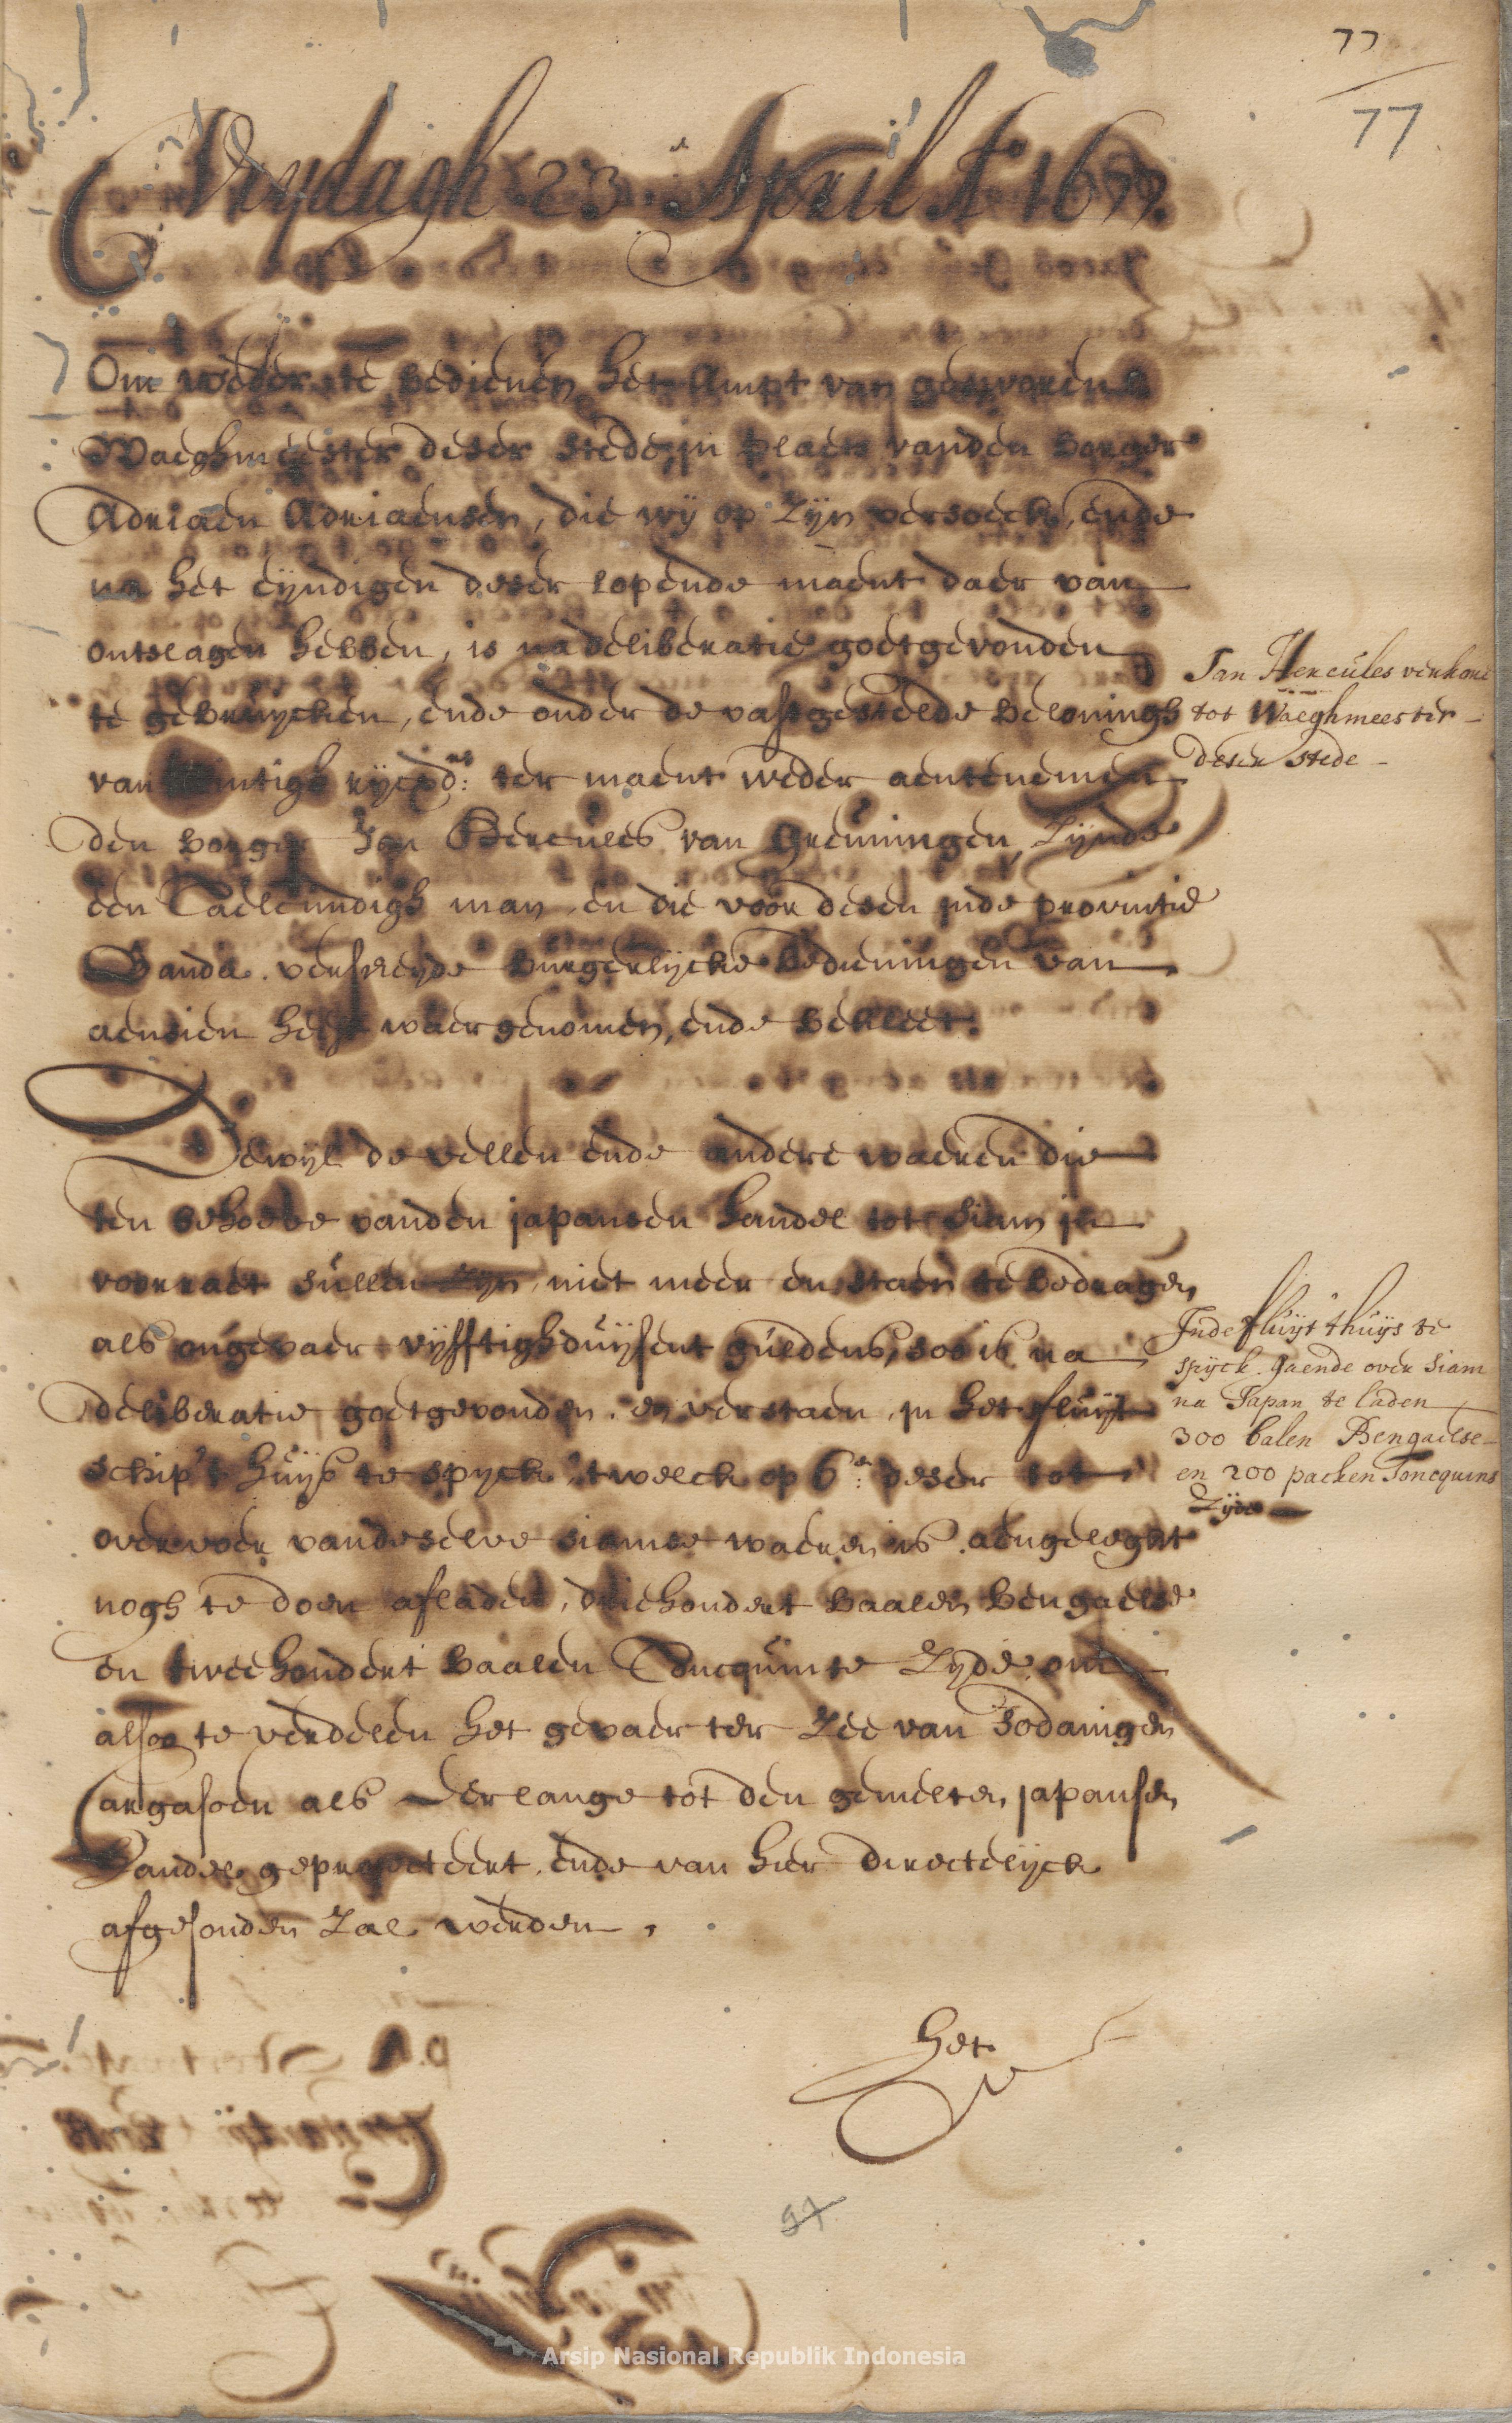 77
77
Vrydagh 23.en April Ao 1677.
Om weder te bedienen het ampt van geswooren
Waeghmeester deser stede, in plaets vanden borger
Adriaen Adriaensen, die wij op zijn versoeck, ende
na het eijndigen deser lopende maent daer van
ontslagen hebben, is na deliberatie goetgevonden
te gebruijcken, ende onder de vastgestelde beloningh
van rijcxd:rs ter maent weder aentenemen
den borger Jan Hercules van Greuningen zijnde
een taelcundigh man, en die voor desen inde provintie
Banda verscheyde burgerlijcke bedieningen van
aensien heeft waergenomen, ende bekleet.
Jan Hercules verkore
tot Waeghmeester
deser stede
Dewijl de vellen ende andere waeren die
ten behoeve vanden japansen handel tot Siam in
voorraet sullen zijn, niet meer en staen te bedragen
als ongevaer vijfftighduijsent guldens, soo is na
deliberatie goetgevonden, en verstaen, in het fluijt
schip 't huijs te spijck, 't welck op 6:en deser tot
overvoer vande selve siamse waeren is aengeleght
nogh te doen afladen, driehondert baalen bengaelse
en tweehondert baalen Toncquinse zyde, om
alsoo te verdelen het gevaer ter zee van sodanigen
Cargasoen als derlange tot den gemelten japansen
handel geprojecteert, ende van hier directelijck
afgesonden zal werden.
Inde fluijt 'thuijs te
spijck. gaende over Siam
na Japan te laden
300 balen Bengaelse
en 200 packen Toncquins
zijde
Het
97
Arsip Nasional Republik Indonesia